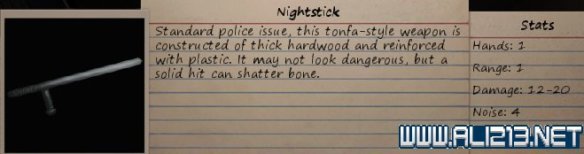 Nightstick
Standard police issue, this tonfa-style weapon is
constructed of thick hardwood and reinforced
with plastic. It may not look dangerous, but a
solid hit can shatter bone.
Stats
Hands: 1
Range: 1
Damage: 12-20
Noise: 4
WWW.ALI213.NET